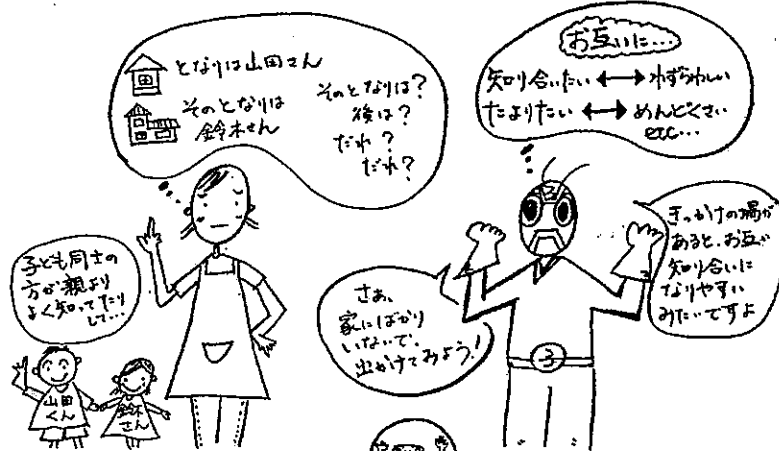 となりは山田さん
そのとなりは
鈴木さん
そのとなりは？
後は？
だれ？
だれ？
お互いに…
知り合いたい ⟷ わずらわしい
たよりたい ⟷ めんどくさい
etc…
子ども同士の
方が親より
よく知ってたり
して…
山田
くん
鈴木
さん
さぁ、
家にばかり
いないで、
出かけてみよう！
きっかけの場が
あると、お互い
知り合いに
なりやすい
みたいですよ
子